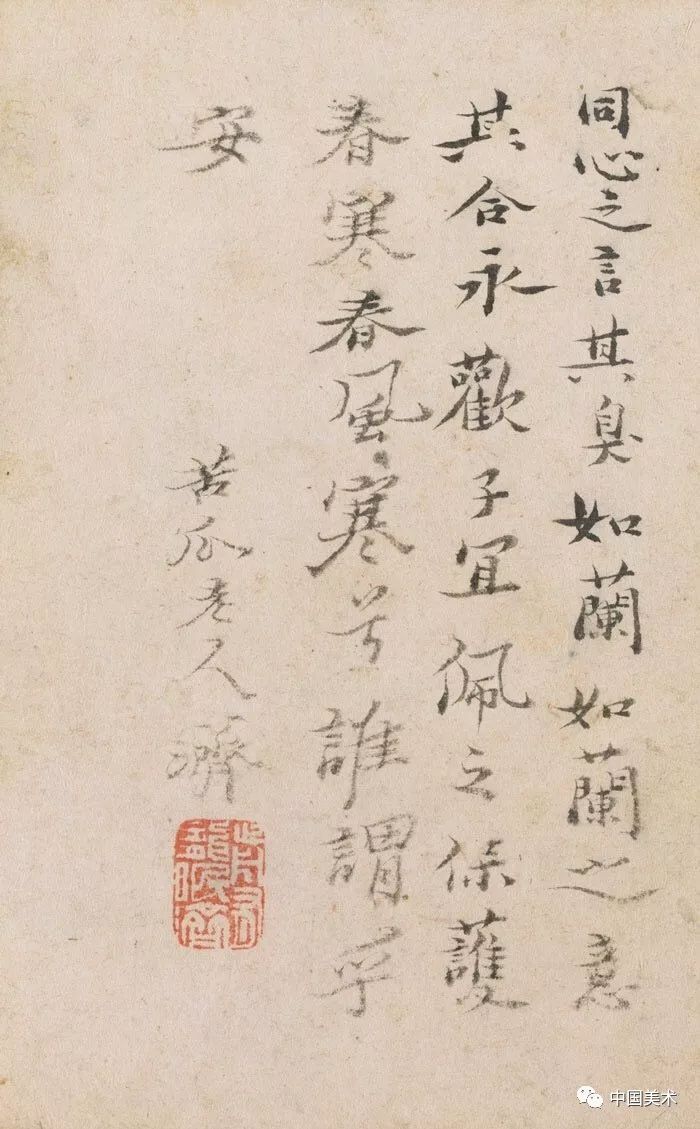 同心之言其臭如蘭如蘭之意
其合永歡子宜佩之保護
春寒春風寒兮誰謂寧
安
苦瓜老人濟
中国美术